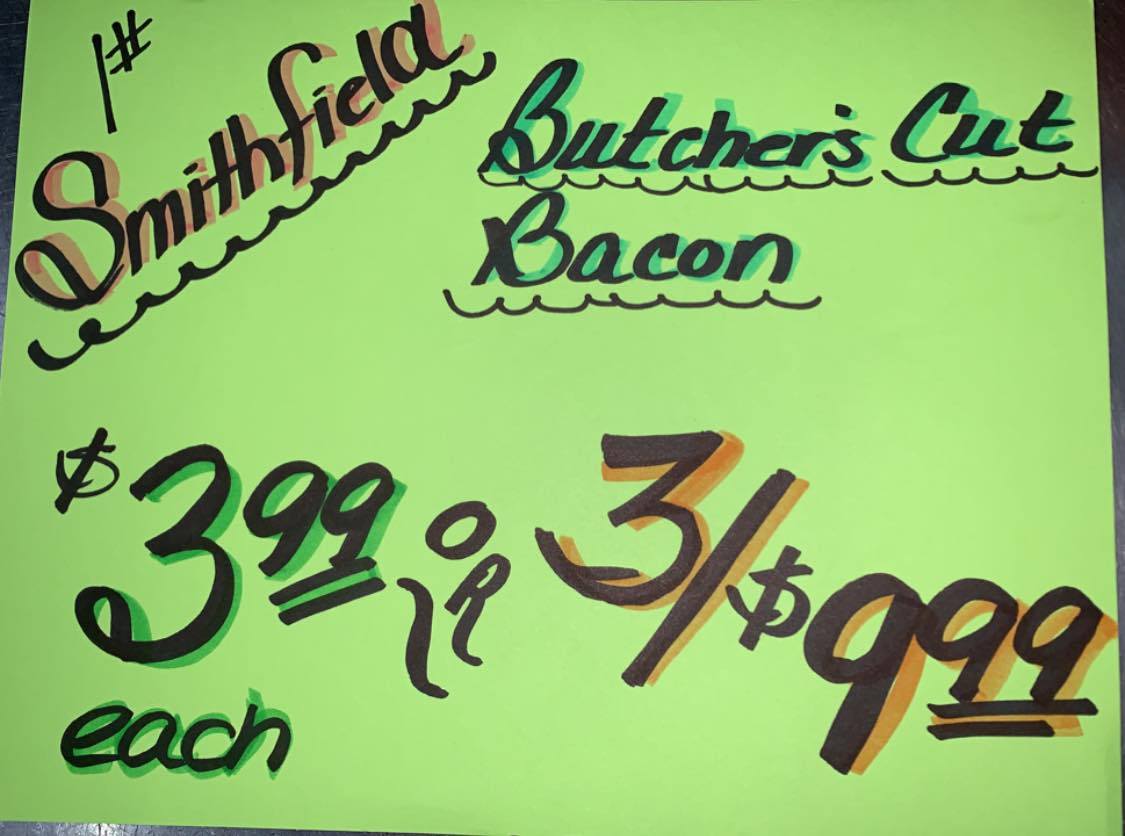 1#
Smithfield
Butcher's Cut
Bacon
$3.99 OR 3/$9.99
each